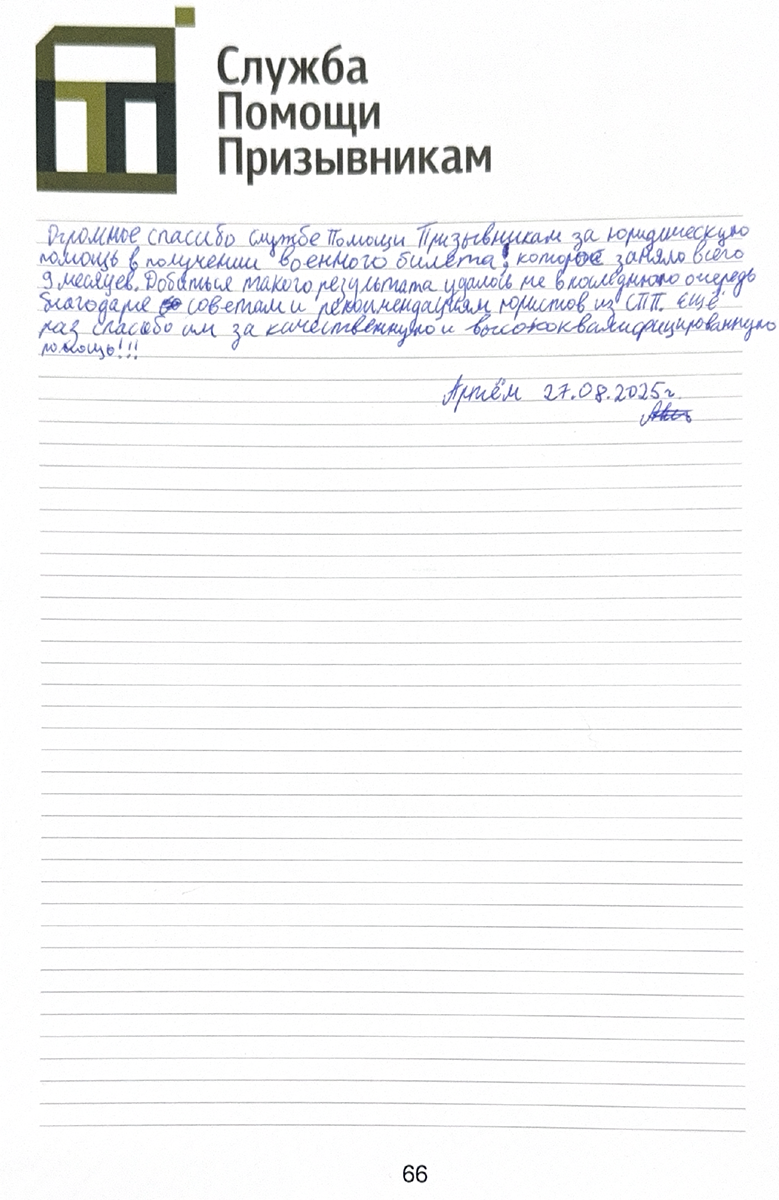 Служба
Помощи
Призывникам
Огромное спасибо службе Помощи Призывникам за юридическую
помощь в получении военного билета, которое заняло всего
9 месяцев. Добиться такого результата удалось не в последнюю очередь
благодаря советам и рекомендациям юристов из СПП. Ещё
раз спасибо им за качественную и высококвалифицированную
помощь!!!
Артём 27.08.2025г.
66